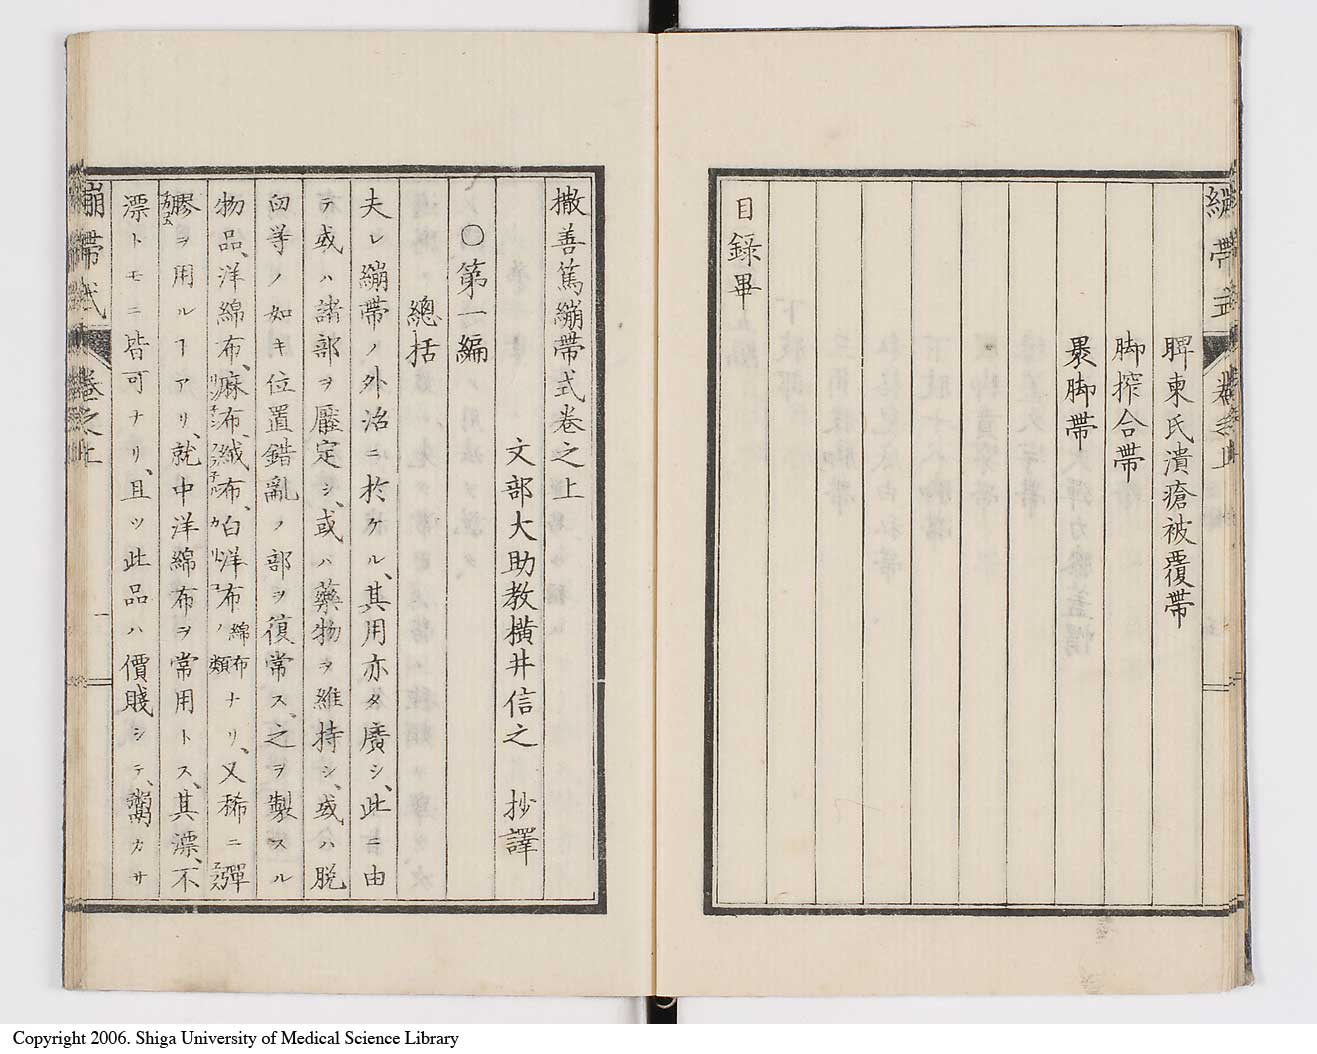 繃帶式 卷之上
脾東氏潰瘡被覆帶
脚搾合帶
裹脚帶
目錄畢
撒善篤繃帶式卷之上
文部大助教橫井信之 抄譯
〇第一編
總括
夫レ繃帶ノ外治ニ於ケル、其用亦タ廣シ、此ニ由
ヲ或ハ諸部ヲ壓定シ、或ハ藥物ヲ維持シ、或ハ脫
臼等ノ如キ位置錯亂ノ部ヲ復常ス、之ヲ製スル
物品、洋綿布、麻布、絨布、白洋布ノ綿布類ナリ、又稀ニ彈
膠ヲ用ルヿアリ、就中洋綿布ヲ常用トス、其漂、不
漂トモニ皆可ナリ、且ツ此品ハ價賤シテ、鬻カサ
繃帶式 卷之上 一
Copyright 2006. Shiga University of Medical Science Library